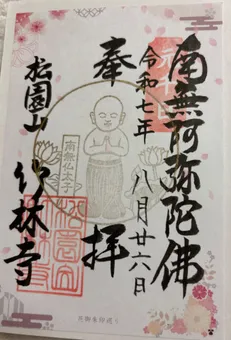 南無阿弥陀佛
奉拝
令和七年 八月廿六日
南無仏太子
松園山
竹林寺